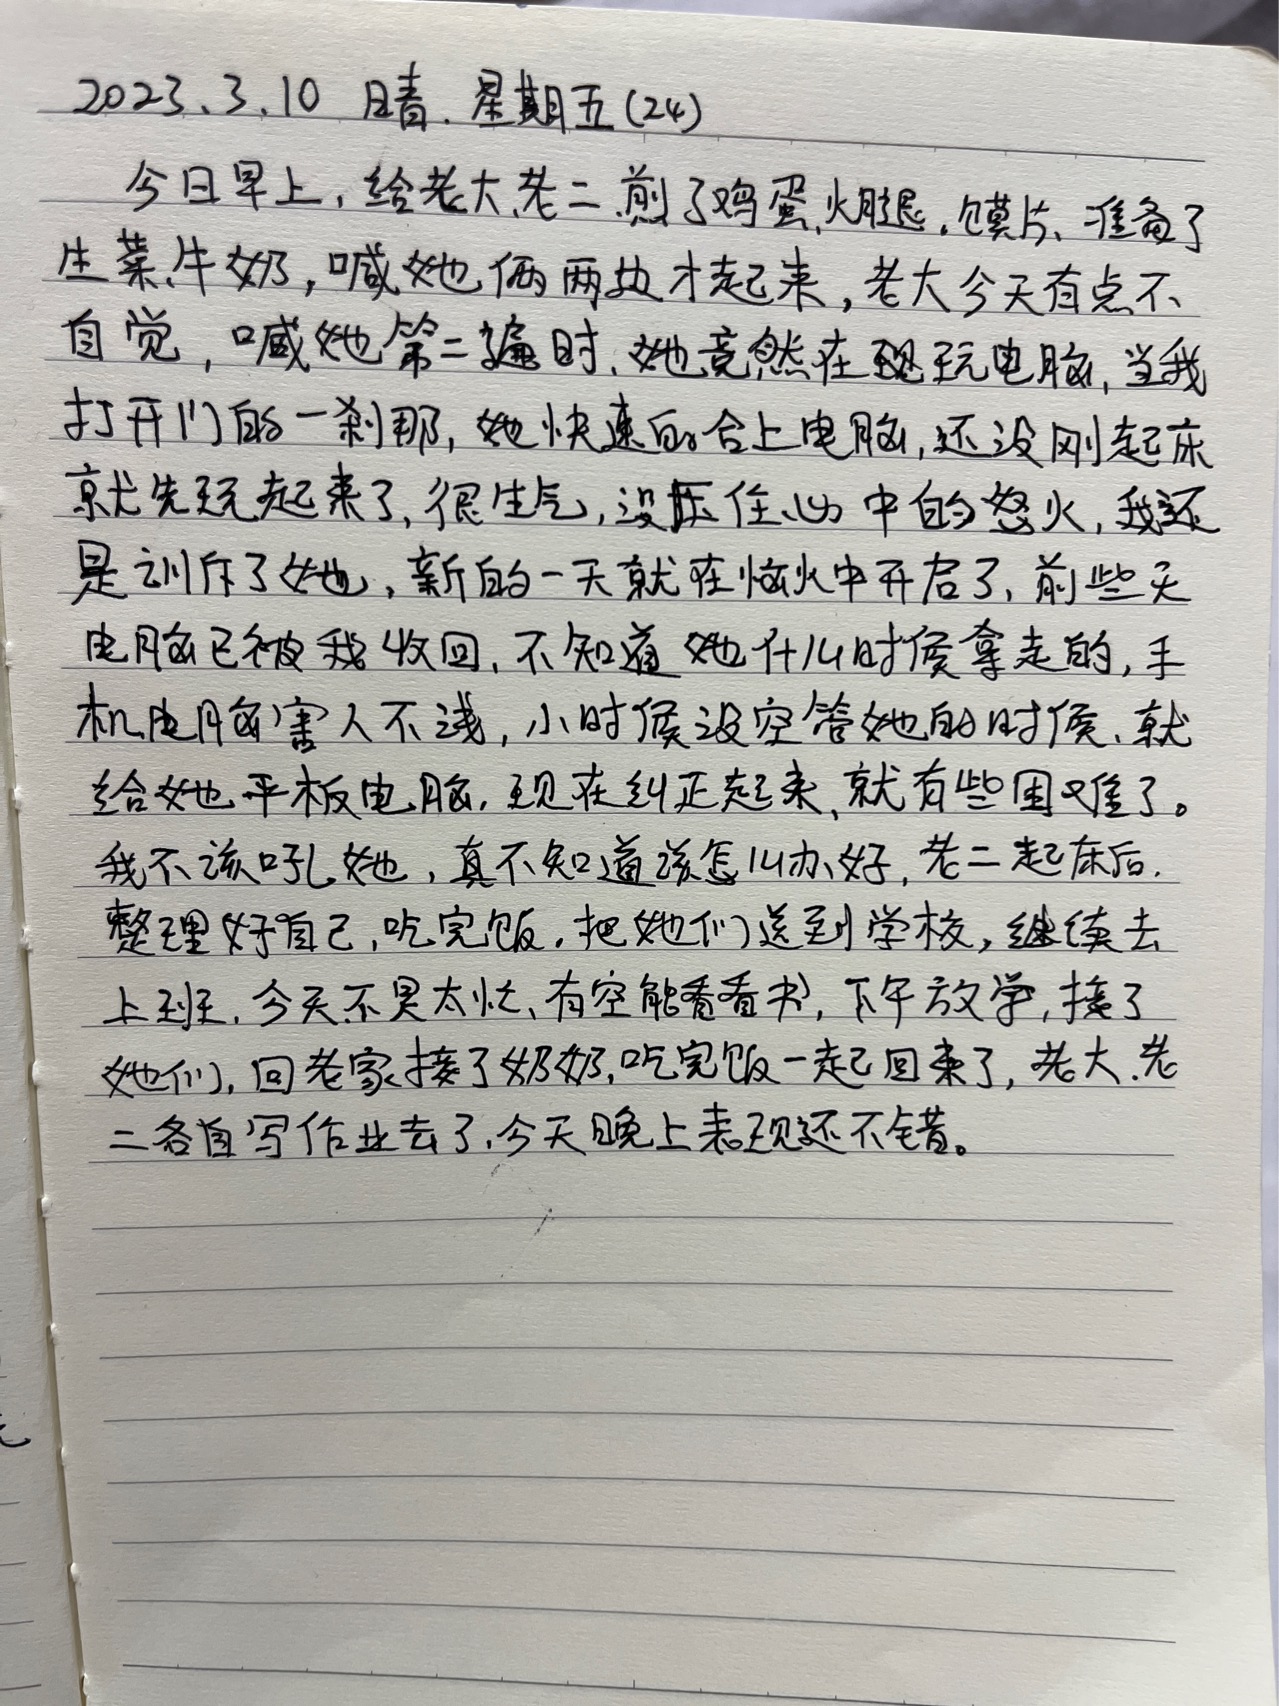 2023.3.10 晴. 星期五(24)
今日早上,给老大、老二煎了鸡蛋、火腿、馍片、准备了
生菜、牛奶,喊她俩两遍才起来,老大今天有点不
自觉,喊她第二遍时、她竟然在玩电脑,当我
打开门的一刹那,她快速的合上电脑,还没刚起床
就先玩起来了,很生气,没压住心中的怒火,我还
是训斥了她,新的一天就在恼火中开启了、前些天
电脑已被我收回,不知道她什么时候拿走的,手
机电脑害人不浅,小时候没空管她的时候、就
给她平板电脑,现在纠正起来,就有些困难了。
我不该吼她,真不知道该怎么办好,老二起床后,
整理好自己,吃完饭,把她们送到学校,继续去
上班,今天不是太忙、有空能看看书,下午放学,接了
她们,回老家接了奶奶,吃完饭一起回来了,老大、老
二各自写作业去了,今天晚上表现还不错。